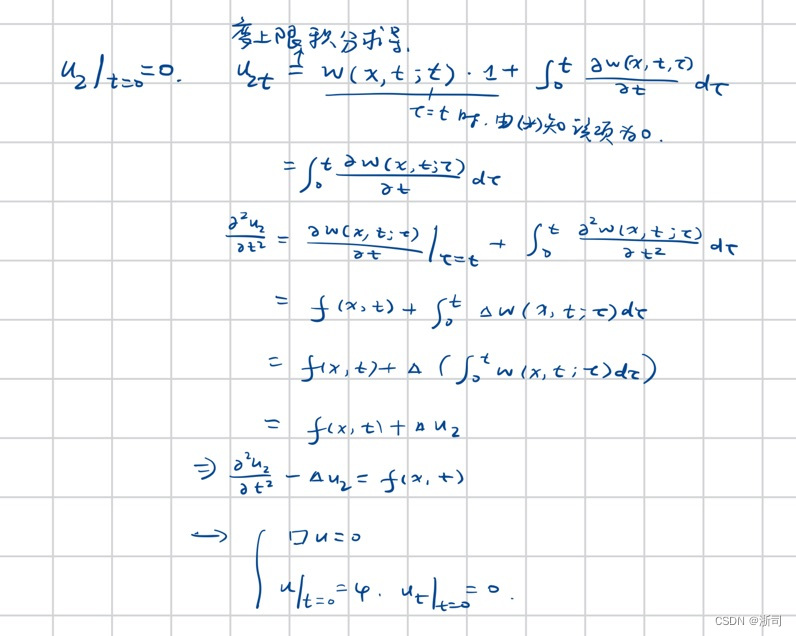 变上限积分求导.
u₂|ₜ₌₀=0. u₂ₜ = w(x,t;t)·1+ ∫₀ᵗ ∂w(x,t,τ)/∂t dτ
τ=t 时. 由(*)知该项为0.
= ∫₀ᵗ ∂w(x,t;τ)/∂t dτ
∂²u₂/∂t² = ∂w(x,t;τ)/∂t |τ=t + ∫₀ᵗ ∂²w(x,t;τ)/∂t² dτ
= f(x,t) + ∫₀ᵗ Δw(x,t;τ)dτ
= f(x,t)+ Δ (∫₀ᵗ w(x,t;τ)dτ)
= f(x,t)+Δu₂
⇒ ∂²u₂/∂t² − Δu₂ = f(x,t)
→ { □u=0
u|ₜ₌₀=φ. uₜ|ₜ₌₀=0.
CSDN @浙司